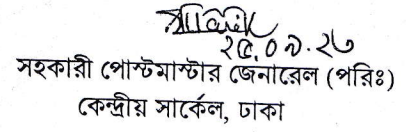 ২৫.০৯.২৩
সহকারী পোস্টমাস্টার জেনারেল (পরিঃ)
কেন্দ্রীয় সার্কেল, ঢাকা